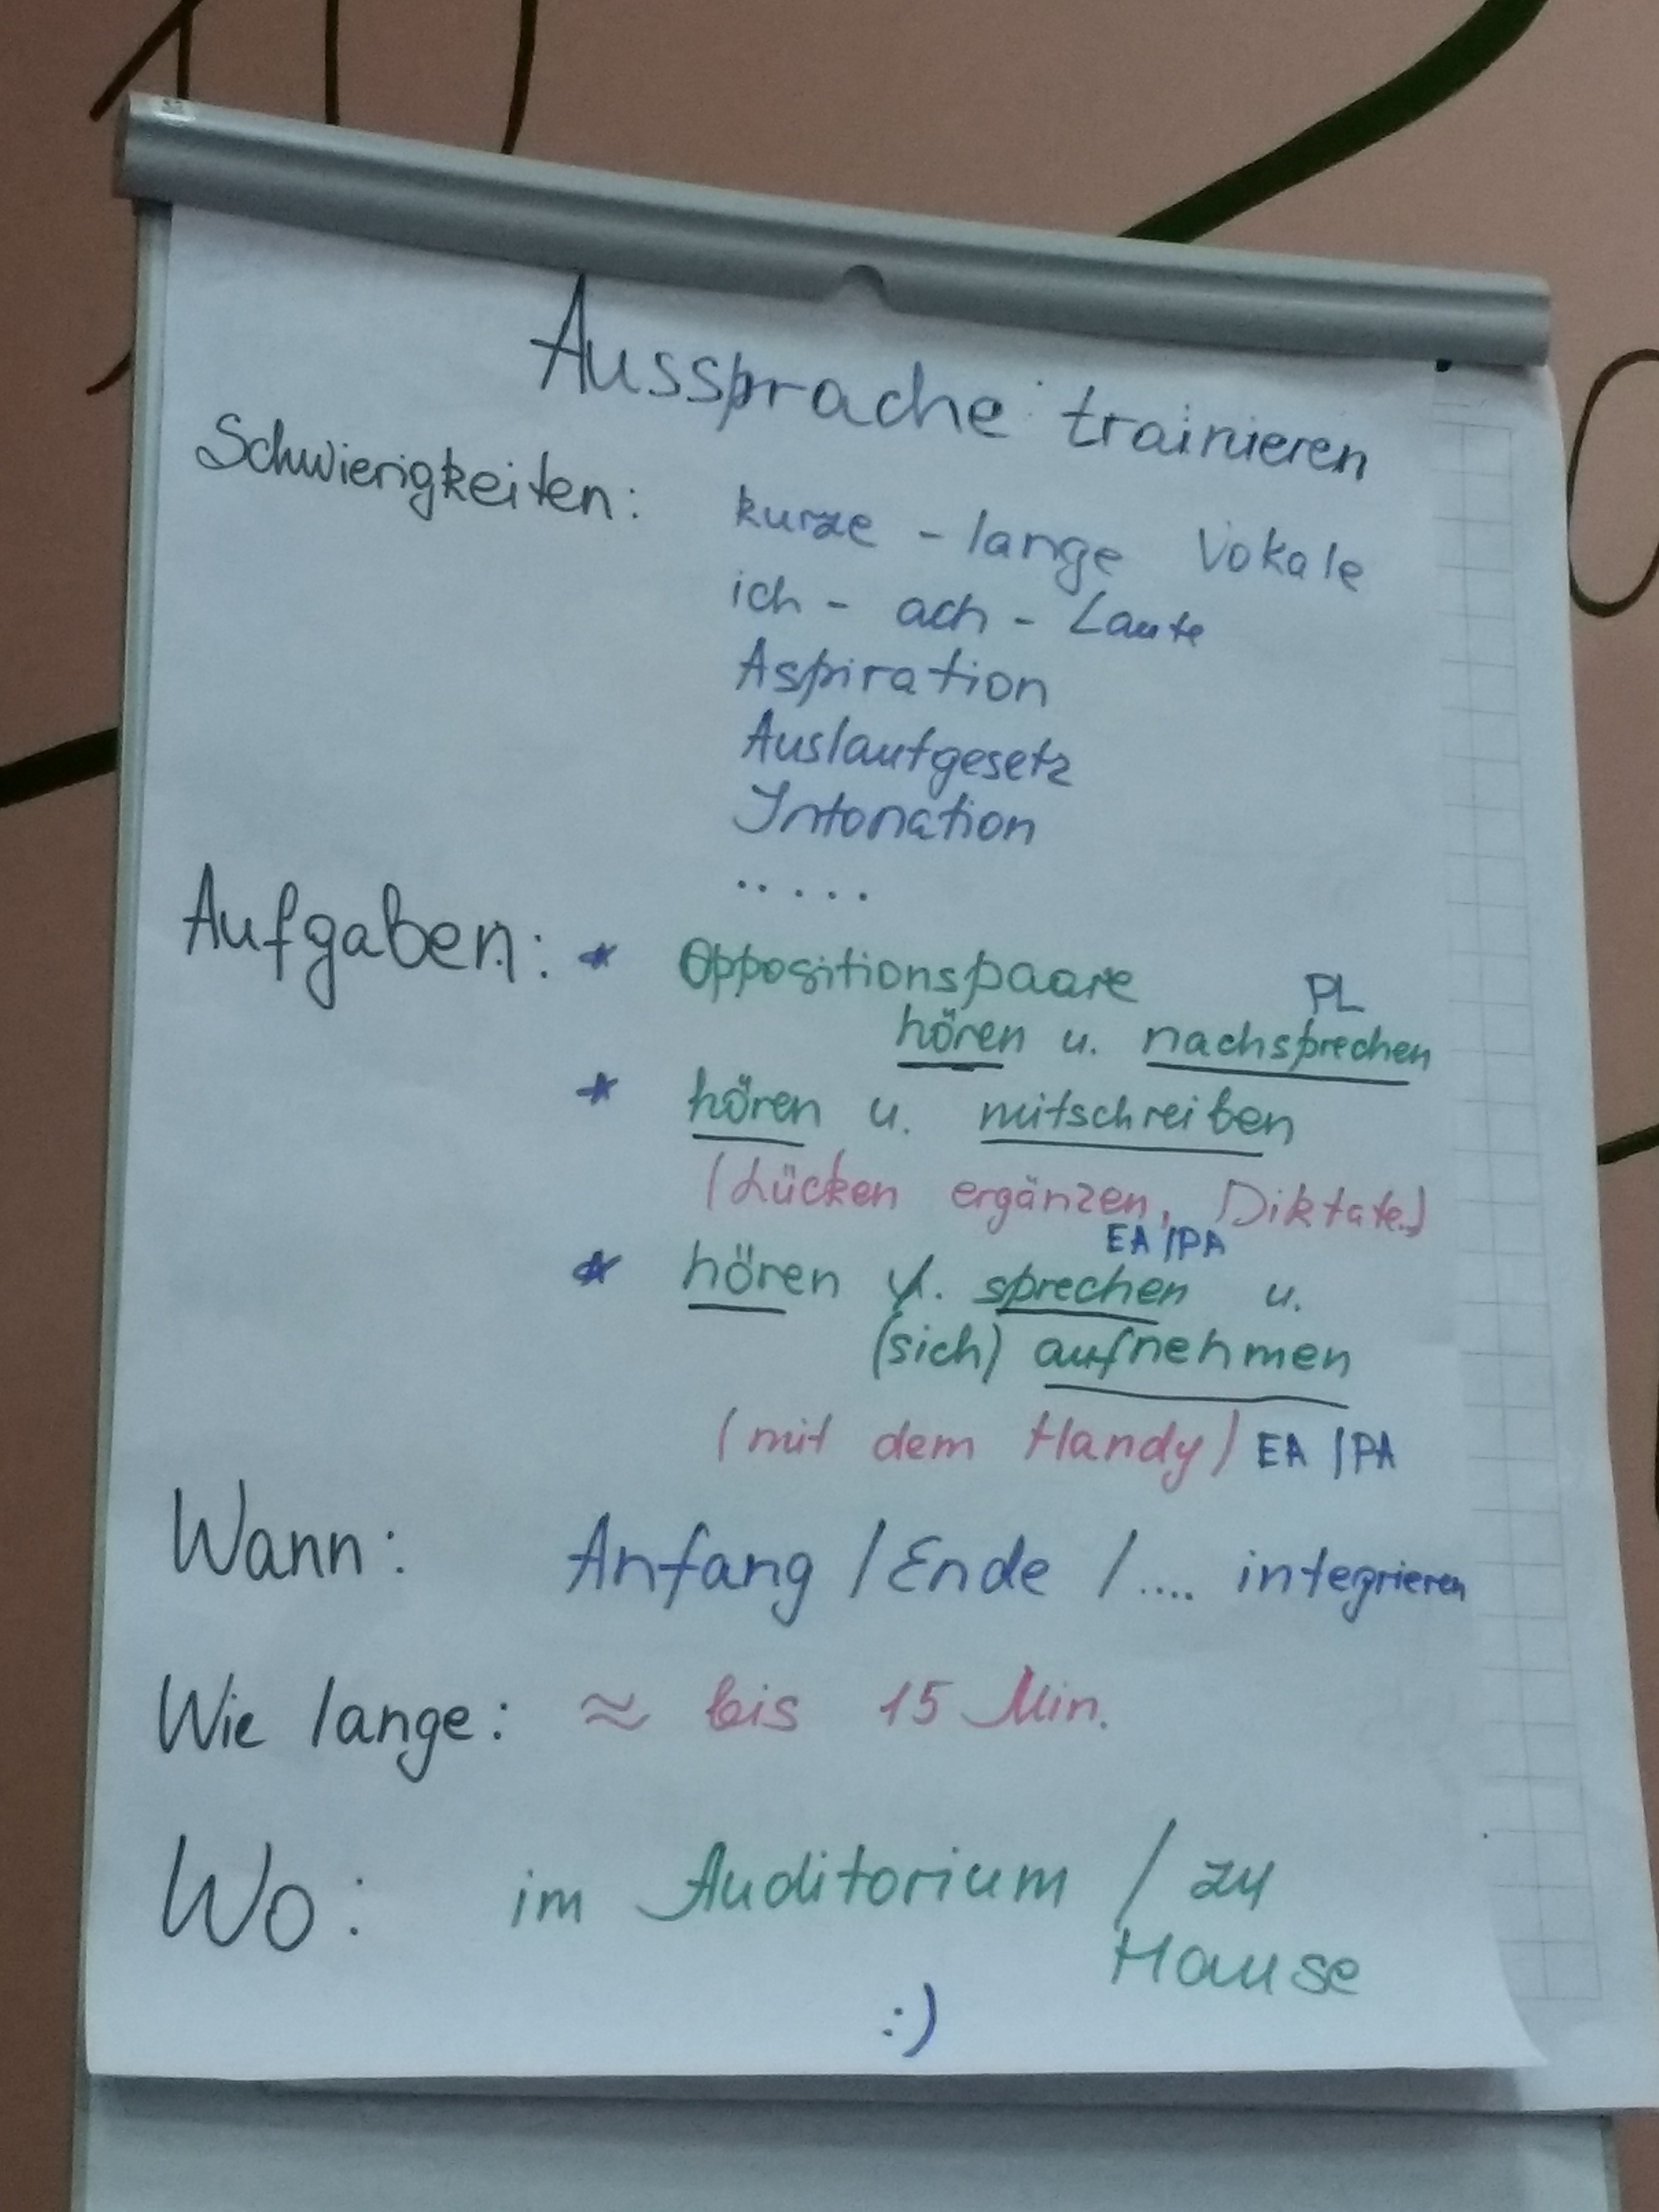 Aussprache trainieren
Schwierigkeiten: kurze - lange Vokale
ich - ach - Laute
Aspiration
Auslautgesetz
Intonation
.....
Aufgaben: * Oppositionspaare PL
hören u. nachsprechen
* hören u. mitschreiben
(Lücken ergänzen, Diktate)
EA/PA
* hören u. sprechen u.
(sich) aufnehmen
(mit dem Handy) EA/PA
Wann: Anfang / Ende / .... integrieren
Wie lange: ≈ bis 15 Min.
Wo: im Auditorium / zu
Hause
:)